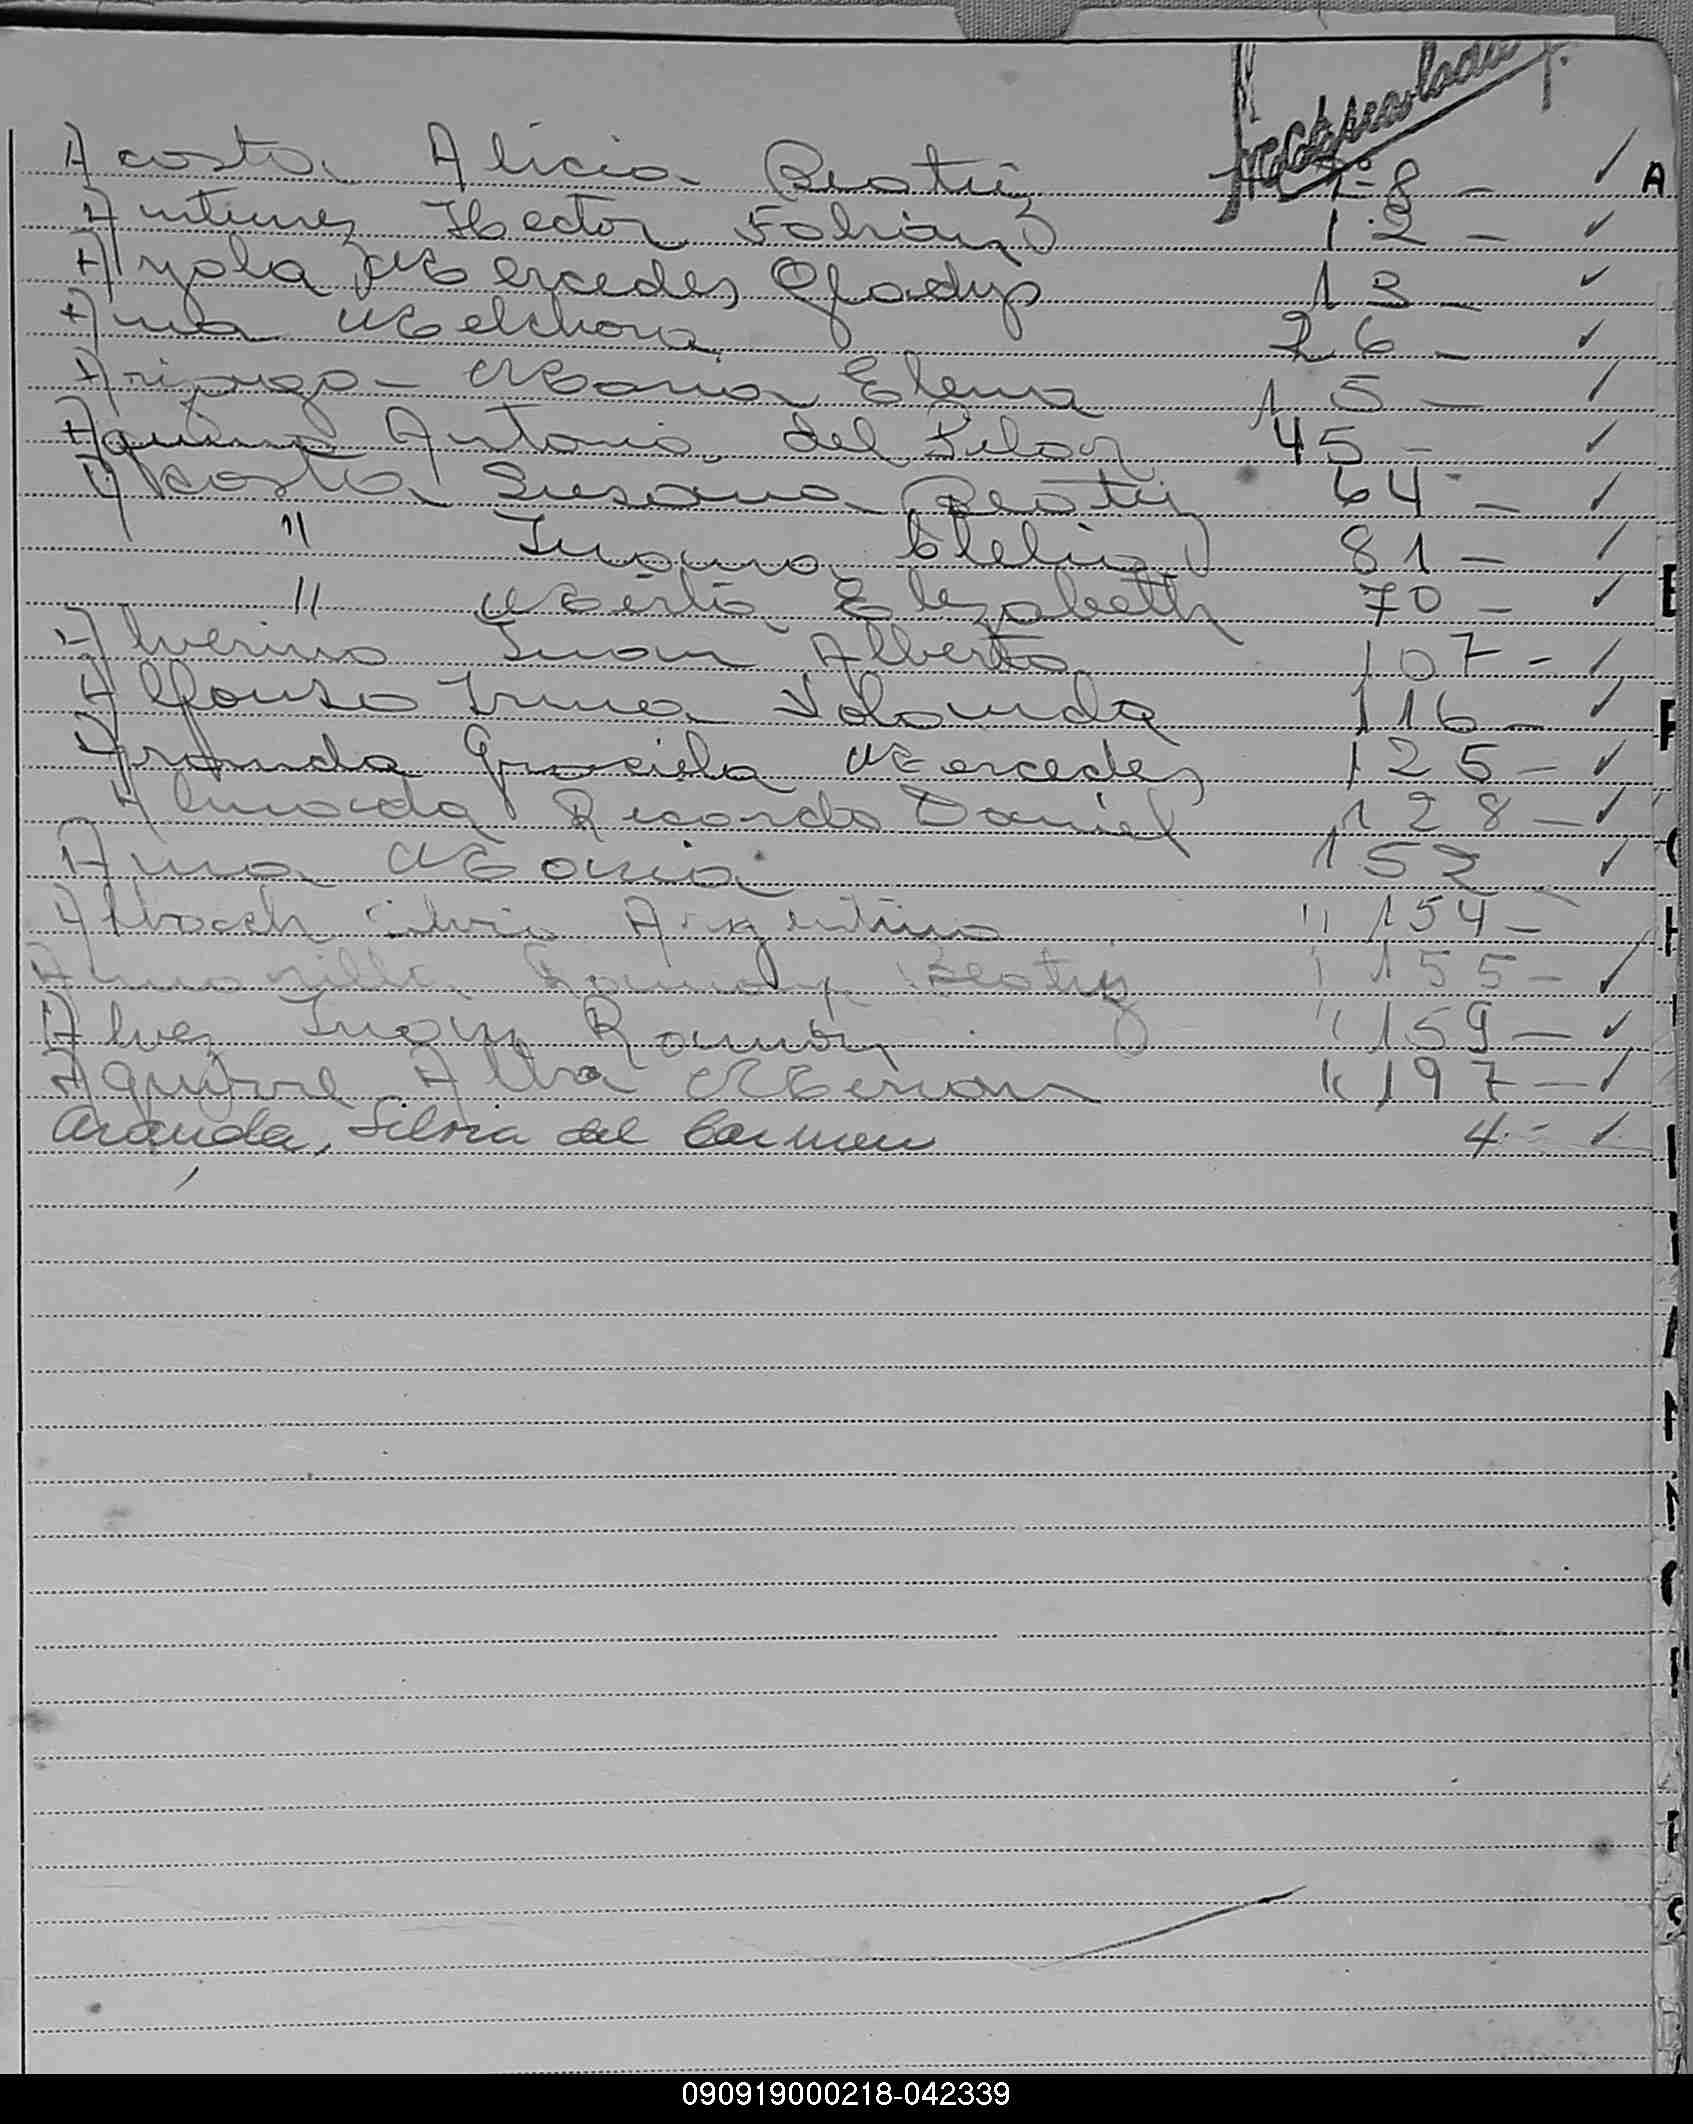 Acosta Alicia Beatriz 8 - ✓ A
Antunez Hector Fabian 12 - ✓
Ayala Mercedes Gladys 13 - ✓
Ana Melchora 26 - ✓
Maria Elena 15 - ✓
Aquino Antonia del Pilar 45 - ✓
Acosta Susana Beatriz 64 - ✓
" Juana Clelia 81 - ✓
" Mirta Elizabeth 70 - ✓
Juan Alberto 107 - ✓
Alfonso Irma Yolanda 116 - ✓
Aranda Graciela Mercedes 125 - ✓
Almada Ricardo Daniel 128 - ✓
Ana Maria 152 ✓
Silvio Argentino " 154 -
Amarilla Ramona Beatriz 155 - ✓
Alvez Juan Ramón " 159 - ✓
Aguirre Alba Merian " 197 - ✓
Aranda, Silvia del Carmen 4 - ✓
090919000218-042339